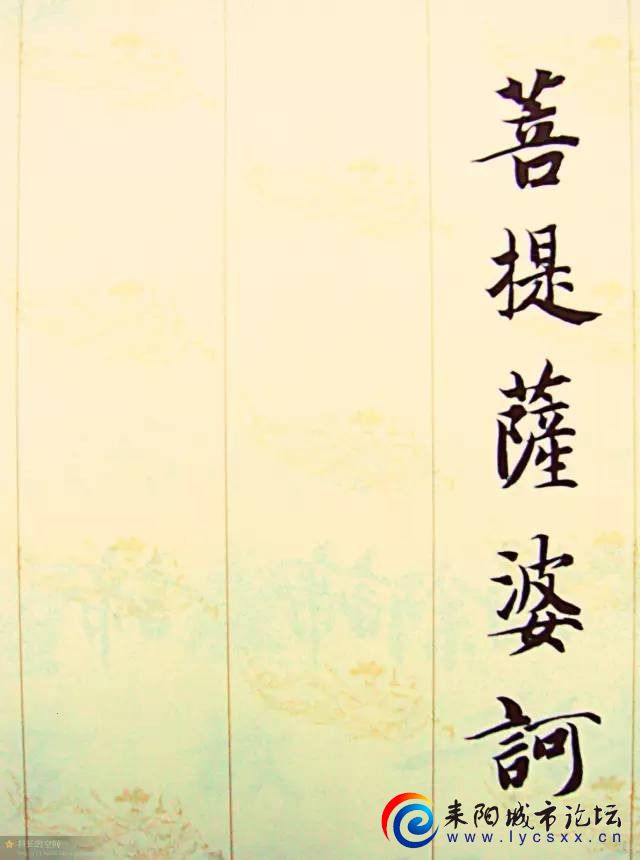 菩提薩婆訶
耒阳城市论坛
www.lycsxx.cn